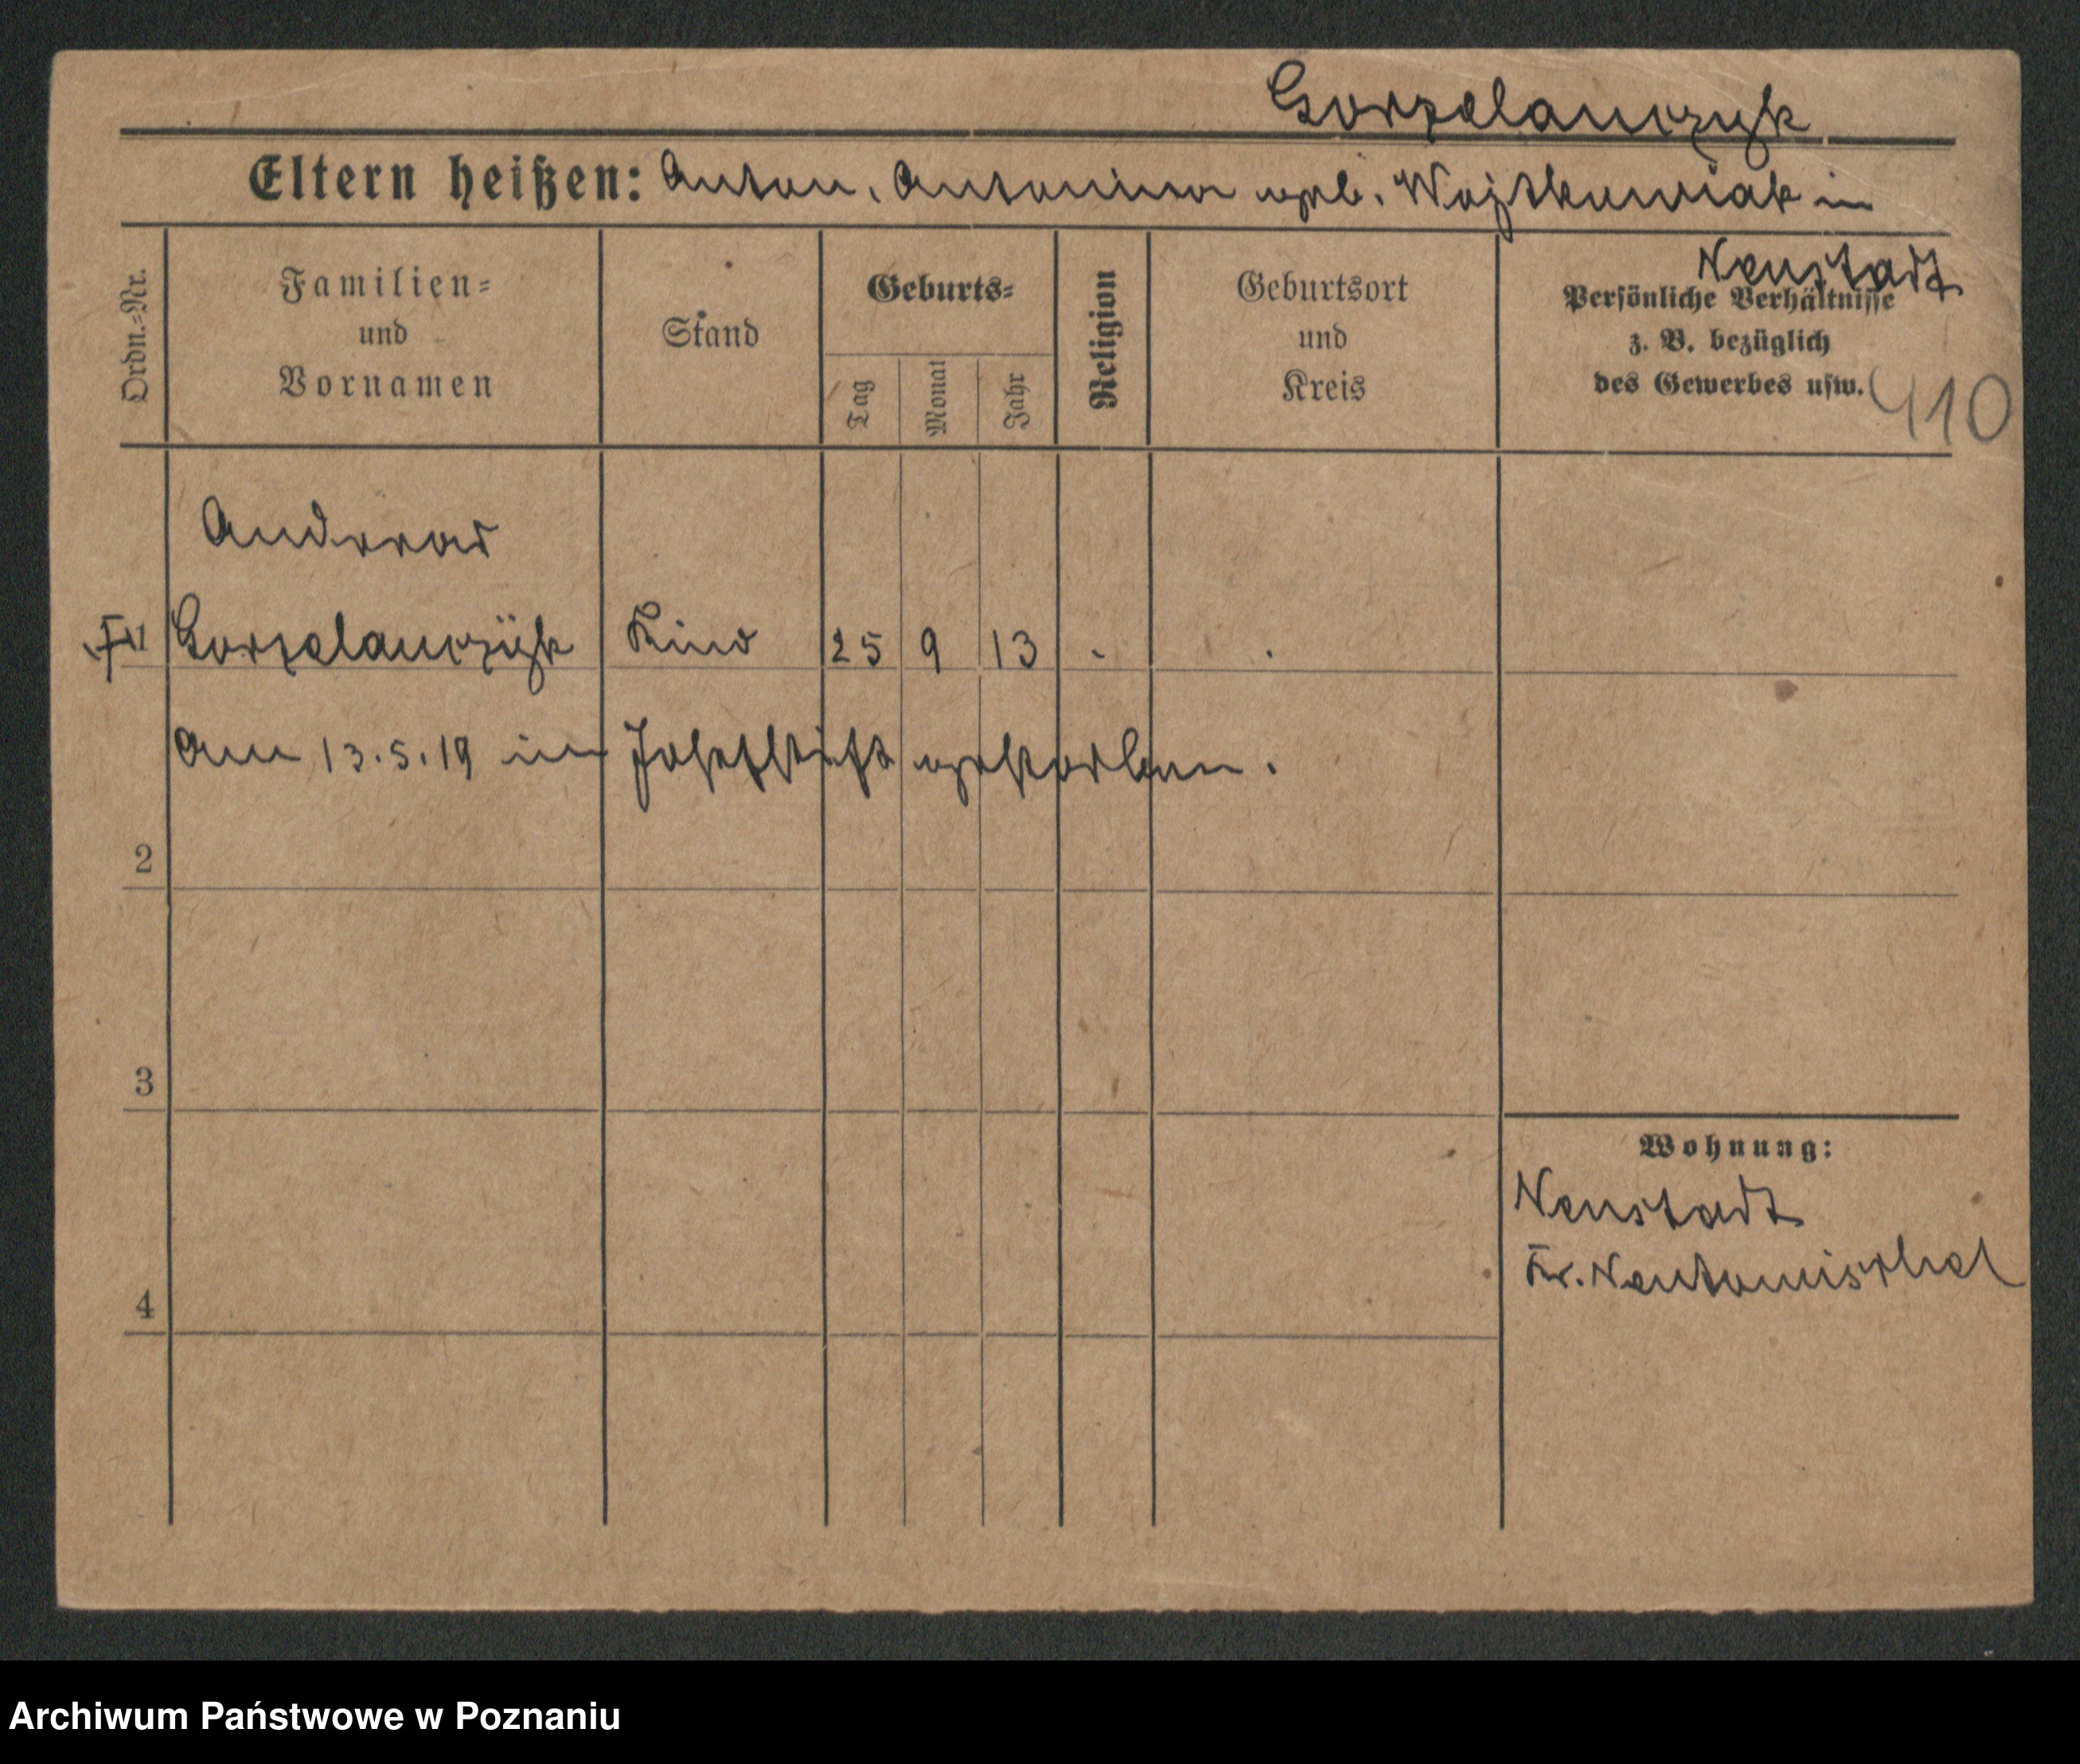 Gorzelanczyk
Eltern heißen: Anton, Antonina geb. Wojtkowiak in
Neustadt
Ordn.-Nr.
Familien-
und
Vornamen
Stand
Geburts-
Tag
Monat
Jahr
Religion
Geburtsort
und
Kreis
Persönliche Verhältnisse
z. B. bezüglich
des Gewerbes usw.
410
Andreas
1 Gorzelanczÿk Kind 25 9 13 - .
Am 13.5.19 im Josefstift gestorben.
2
3
4
Wohnung:
Neustadt
Kr. Neutomischel
Archiwum Państwowe w Poznaniu